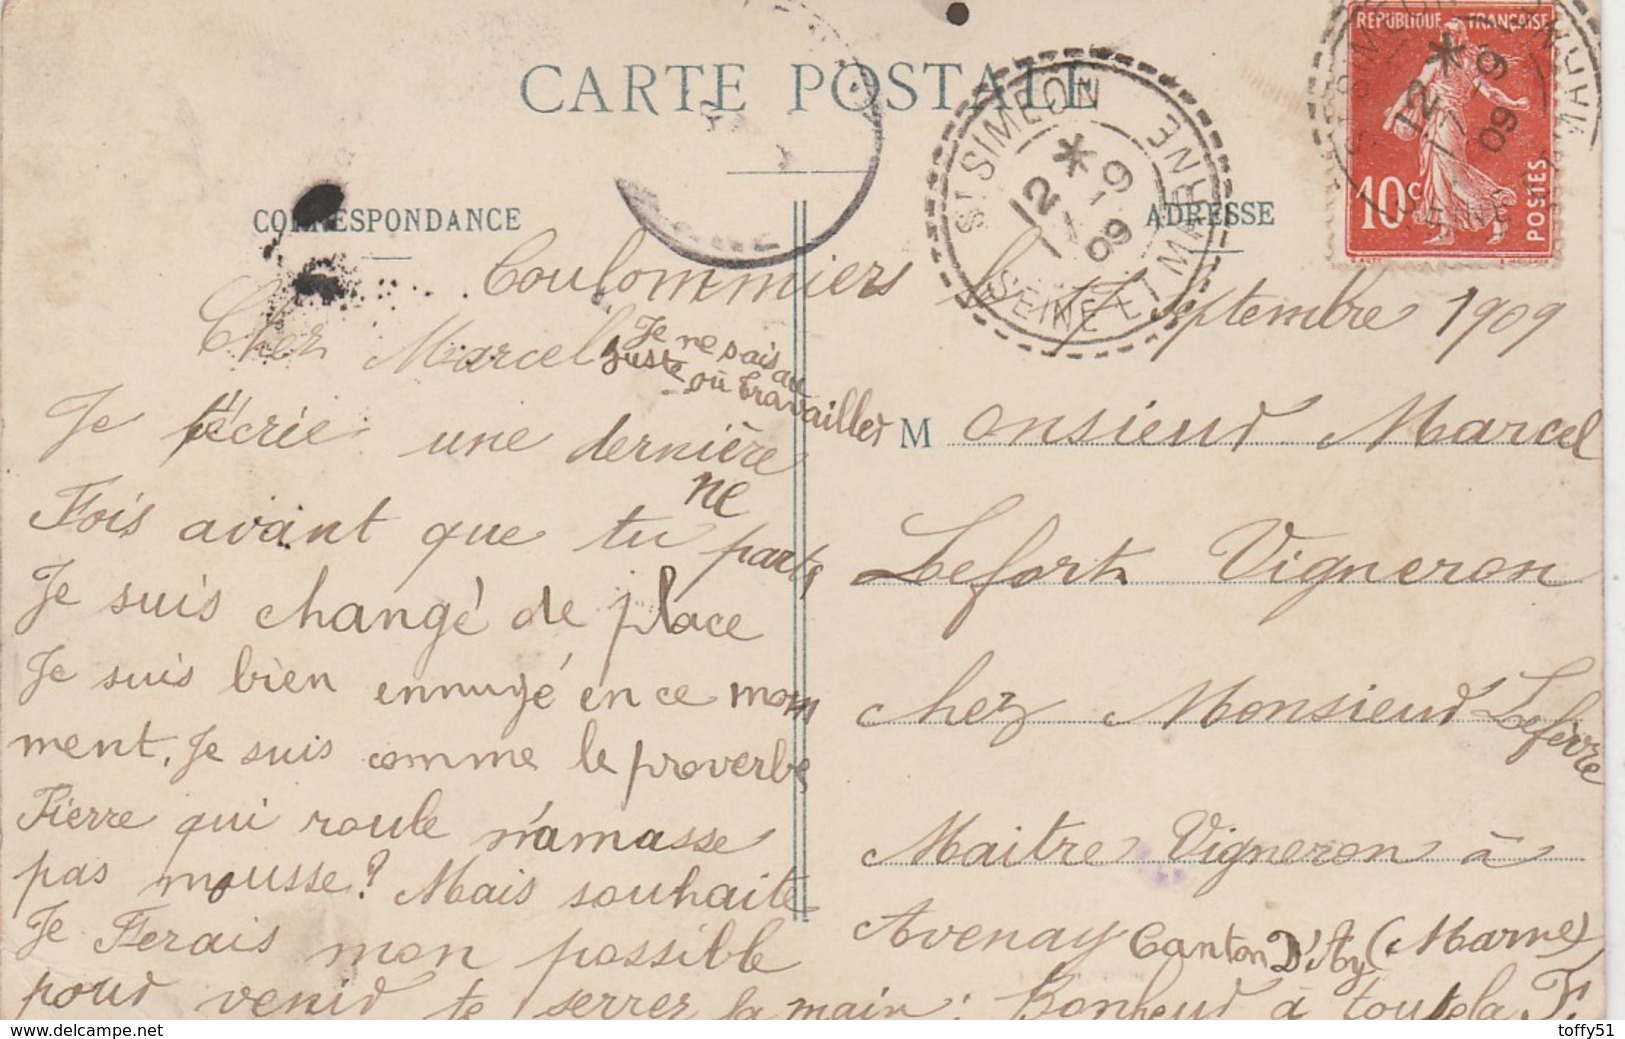 CARTE POSTALE
CORRESPONDANCE
ADRESSE
REPUBLIQUE FRANÇAISE
10c
POSTES
ST SIMEON
12 *
17 - 9
09
SEINE ET MARNE
Coulommiers le 17 Septembre 1909
Cher Marcel
Je ne sais au
juste où travailler
Je t'écrie une dernière
Fois avant que tu ne parts
Je suis changé de place
Je suis bien ennuyé en ce mom
ment. Je suis comme le proverbe
Pierre qui roule n'amasse
pas mousse? Mais souhaite
Je Ferais mon possible
pour venir te serrer la main; Bonheur à toute la F.
Monsieur Marcel
Lefort Vigneron
chez Monsieur Lefèvre
Maitre Vigneron à
Avenay Canton D'Ay (Marne)
delcampe.net
toffy51